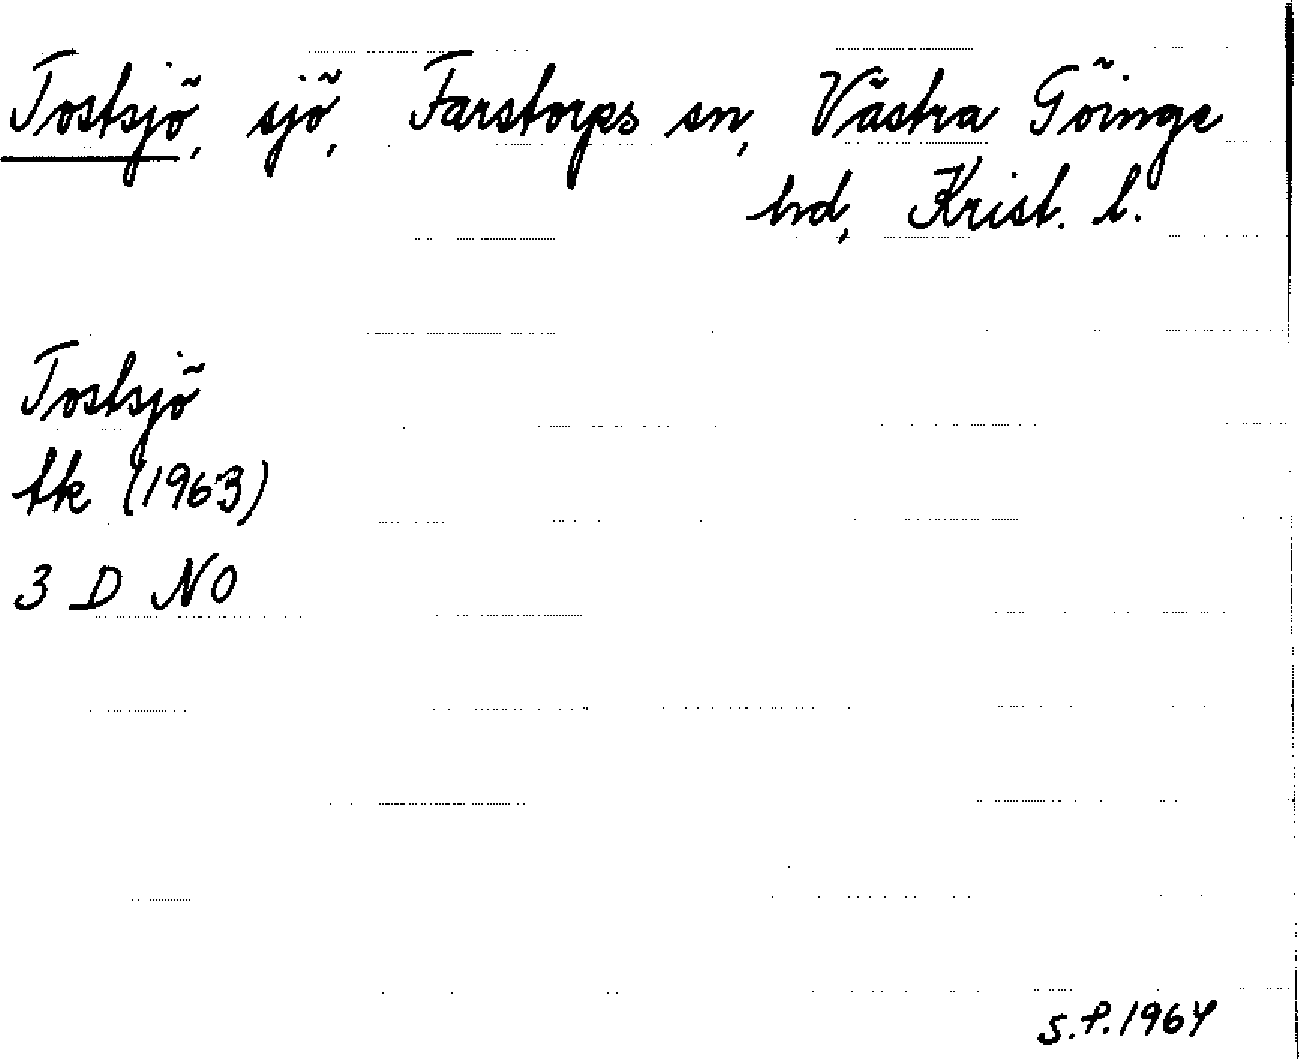 Tostsjö, sjö, Farstorps sn, Västra Göinge
hd, Krist. l.
Tostsjö
tk (1963)
3 D NO
S.P. 1964